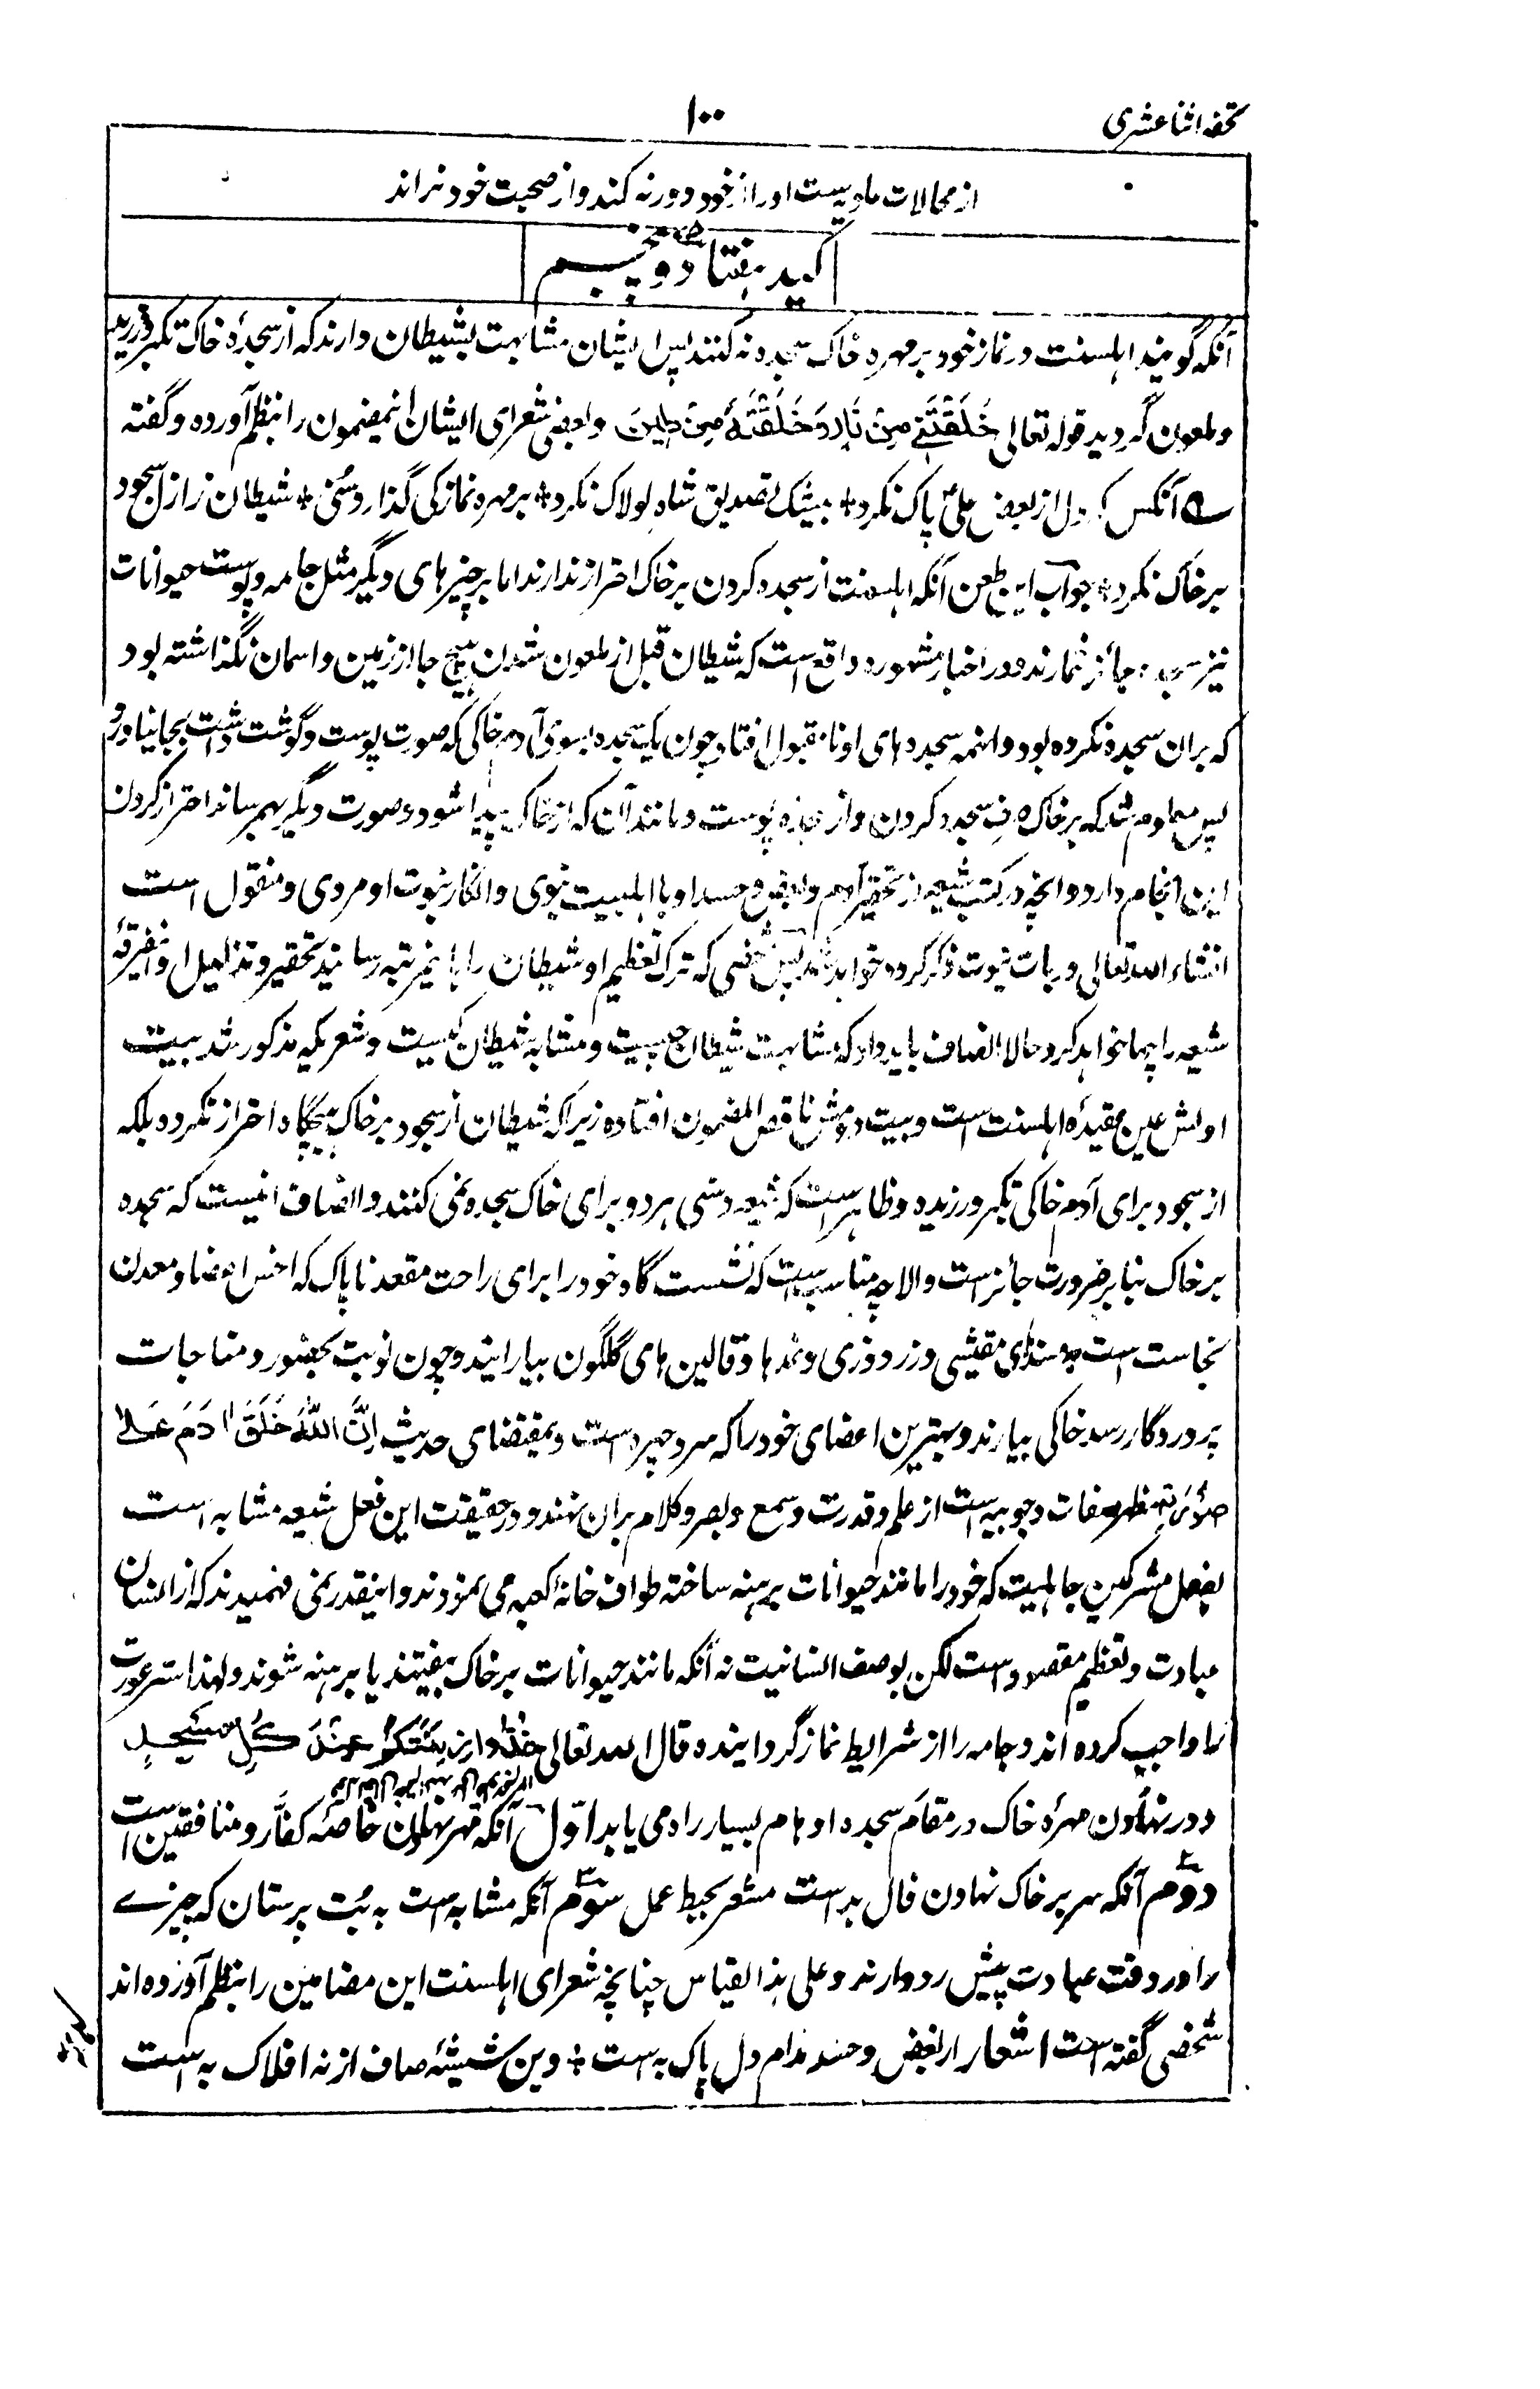 تحفه اثنا عشری
۱۰۰
از محالات عادیست او را از خود دور نه کند و از صحبت خود نراند
کید هفتاد و پنجم
آنکه گویند اهلسنت در نماز خود بر مهره خاک سجده نه کنند پس ایشان مشابهت بشیطان دارند که از سجدهٔ خاک تکبر ورزید
و ملعون گردید قوله تعالی خَلَقْتَنِی مِنْ نَارٍ وَخَلَقْتَهٗ مِنْ طِین و بعضی شعرای ایشان اینمضمون را بنظم آورده و گفته
آنکس که دل از بغض علیؑ پاک نکرد + بیشک تصدیق شاه لولاک نکرد + بر مهره نماز کی گذارد سُنی + شیطان ز ازل سجود
بر خاک نکرد + جواب این طعن آنکه اهلسنت از سجده کردن بر خاک احتراز ندارند اما بر چیزهای دیگر مثل جامه و پوست حیوانات
نیز سجده جائز شمارند و در اخبار مشهوره واقع است که شیطان قبل از ملعون شدن هیچ جا از زمین و اسمان نگذاشته بود
که بران سجده نکرده بود و اینهمه سجده های او نامقبول افتاد چون یک سجده بسوی آدم خاکی که صورت پوست و گوشت داشت بجا نیاورد
پس معلوم شد که بر خاک سجده کردن و از پوست و مانند آن که از خاک پیدا شود و صورت دیگر بهم رساند احتراز کردن
این انجام دارد و انچه در کتب شیعه از تحقیر آدم و بغض و حسد او با اهلبیت نبوی و انکار نبوت او مروی و منقول است
انشاء الله تعالی در باب نبوت ذکر کرده خواهد شد پس شخصی که ترک تعظیم او شیطان را باینمرتبه رسانید تحقیر و تذلیل او فرقهٔ
شیعه را چها خواهد کرد حالا انصاف باید داد که مشابهت شیطان چیست و مشابه شیطان کیست و شعریکه مذکور شد بیت
اولش عین عقیدهٔ اهلسنت است و بیت دومش ناقص المضمون افتاده زیرا که شیطان از سجود بر خاک هیچگاه احتراز نکرده بلکه
از سجود برای آدم خاکی تکبر ورزیده و ظاهر است که شیعه و سنی هر دو برای خاک سجده نمی کنند و انصاف اینست که سجده
بر خاک بنا بر ضرورت جائز است و الا چه مناسب است که نشست گاه خود را برای راحت مقعد ناپاک که اخس اعضا و معدن
نجاست است بمسندهای مقیشی و زردوزی و نمدها و قالین های گلگون بیارایند و چون نوبت بحضور و مناجات
پروردگار رسد خاکی بیارند و بهترین اعضای خود را که سر و چهره است و بمقتضای حدیث اِنَّ اللّٰهَ خَلَقَ اٰدَمَ عَلٰی
صُوْرَتِهٖ مظهر صفات وجوبیه است از علم و قدرت و سمع و بصر و کلام بران نهند و در حقیقت این فعل شیعه مشابه است
بفعل مشرکین جاهلیت که خود را مانند حیوانات برهنه ساخته طواف خانهٔ کعبه می نمودند و اینقدر نمی فهمیدند که از انسان
عبادت و تعظیم مقصود است لکن بوصف انسانیت نه آنکه مانند حیوانات بر خاک بیفتند یا برهنه شوند و لهذا ستر عورت
را واجب کرده اند و جامه را از شرایط نماز گردانیده قال الله تعالی خُذُوا زِینَتَکُمْ عِنْدَ کُلِّ مَسْجِدٍ
و در نهادن مهرهٔ خاک در مقام سجده اوهام بسیار راه می یابد اوّل آنکه مهر نهادن خاصهٔ کفّار و منافقین است
دوّم آنکه سر بر خاک نهادن فال بد است مشعر بحبط عمل سوّم آنکه مشابه است به بُت پرستان که چیزے
را در وقت عبادت پیش رو دارند و علی هذا القیاس چنانچه شعرای اهلسنت این مضامین را بنظم آورده اند
شخصی گفته است اشعار از بغض و حسد مدام دل پاک به است + وین شیشهٔ صاف از نه افلاک به است